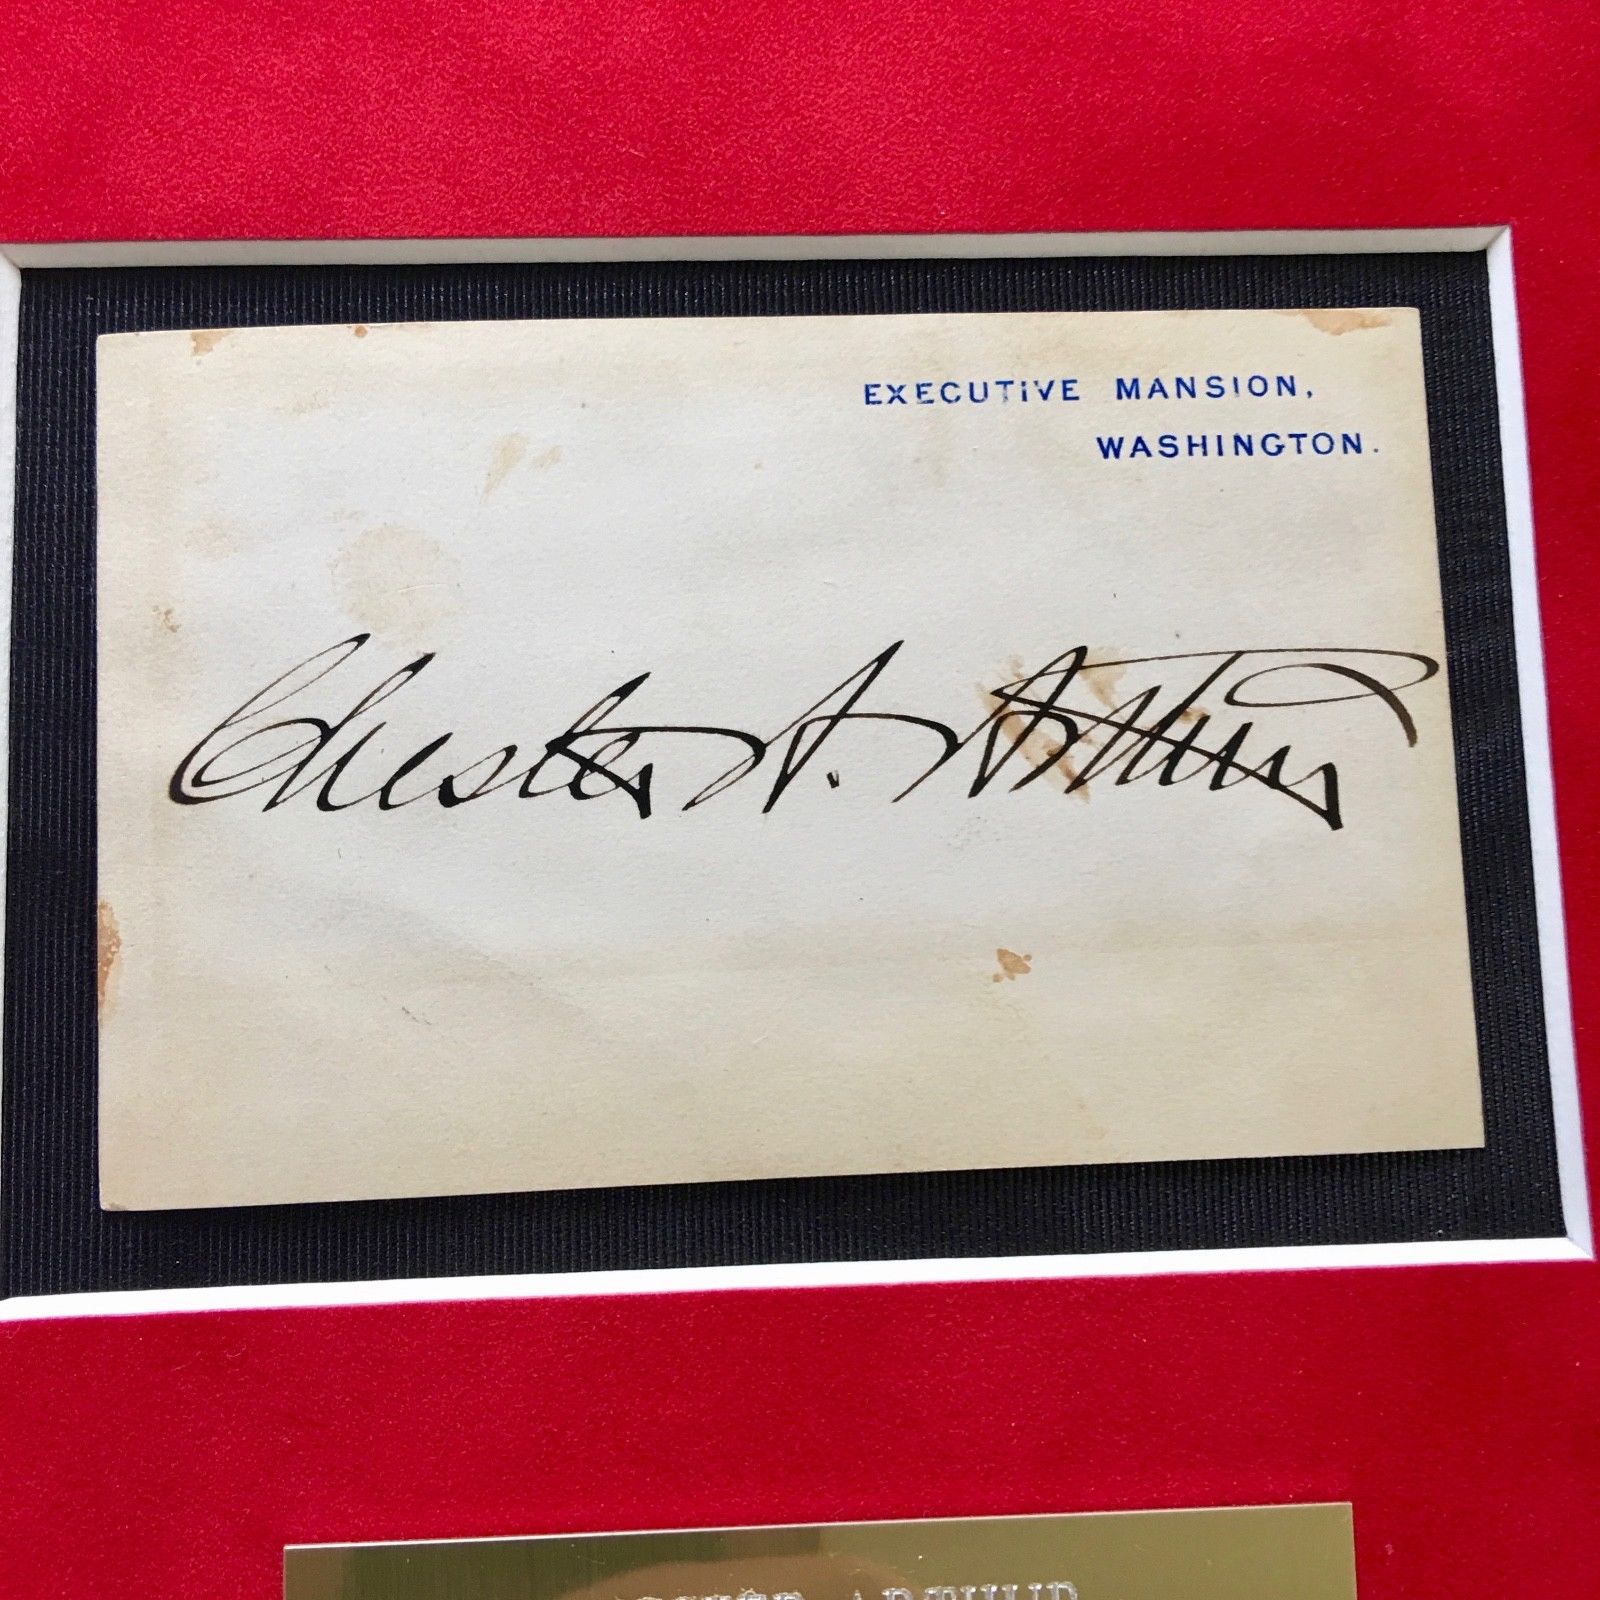 EXECUTIVE MANSION,
WASHINGTON.
Chester A. Arthur
ARTHUR